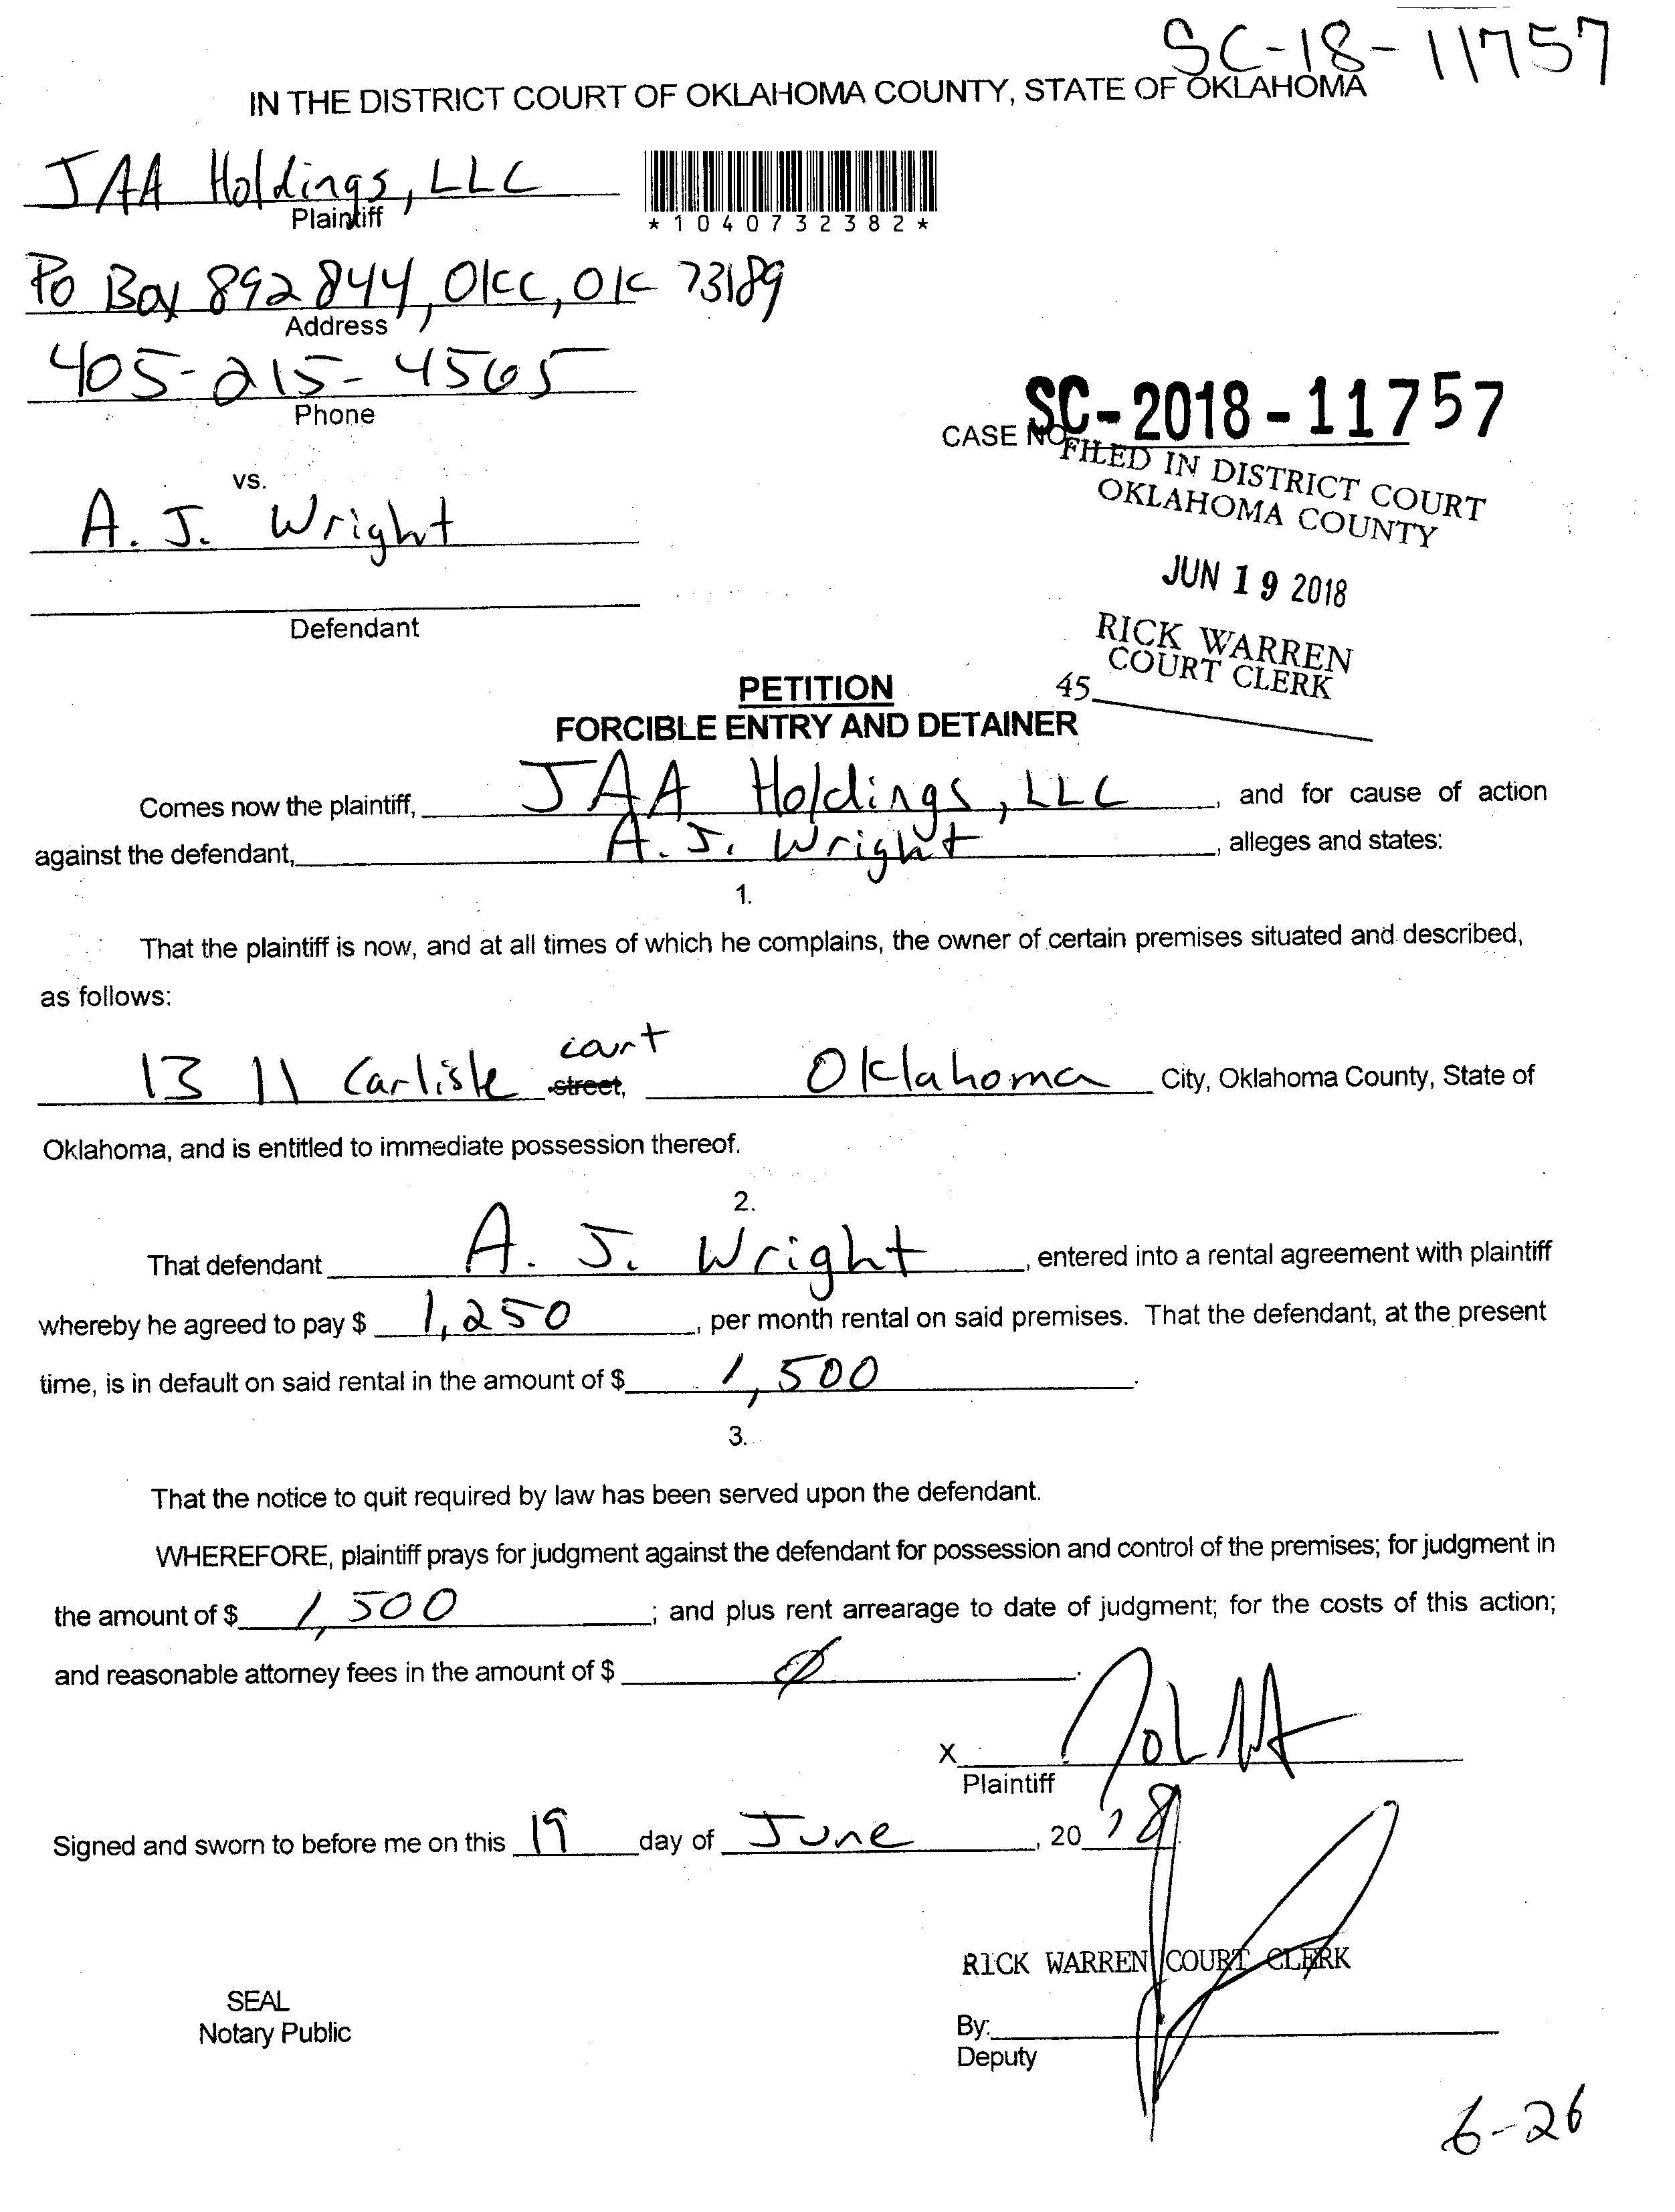 SC-18-11757
IN THE DISTRICT COURT OF OKLAHOMA COUNTY, STATE OF OKLAHOMA
JAA Holdings, LLC
Plaintiff
*1040732382*
PO Box 892844, OKC, OK 73189
Address
405-215-4565
Phone
CASE NO. SC-2018-11757
FILED IN DISTRICT COURT
OKLAHOMA COUNTY
JUN 19 2018
RICK WARREN
COURT CLERK
45
vs.
A. J. Wright
Defendant
PETITION
FORCIBLE ENTRY AND DETAINER
Comes now the plaintiff, JAA Holdings, LLC, and for cause of action
against the defendant, A. J. Wright, alleges and states:
1.
That the plaintiff is now, and at all times of which he complains, the owner of certain premises situated and described,
as follows:
1311 Carlisle street, court Oklahoma City, Oklahoma County, State of
Oklahoma, and is entitled to immediate possession thereof.
2.
That defendant A. J. Wright, entered into a rental agreement with plaintiff
whereby he agreed to pay $ 1,250, per month rental on said premises. That the defendant, at the present
time, is in default on said rental in the amount of $ 1,500.
3.
That the notice to quit required by law has been served upon the defendant.
WHEREFORE, plaintiff prays for judgment against the defendant for possession and control of the premises; for judgment in
the amount of $ 1,500; and plus rent arrearage to date of judgment; for the costs of this action;
and reasonable attorney fees in the amount of $ Ø.
X
Plaintiff
Signed and sworn to before me on this 19 day of June, 2018.
RICK WARREN COURT CLERK
SEAL
Notary Public
By:
Deputy
6-26